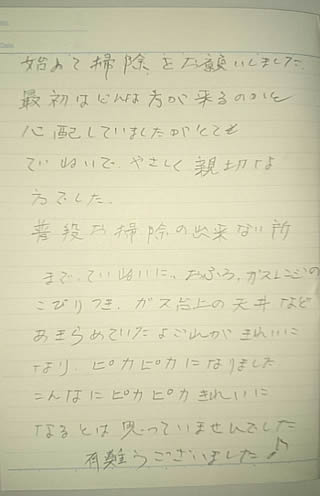 始めて掃除をお願いしました
最初はどんな方が来るのかと
心配していましたがとても
ていねいで、やさしく親切な
方でした。
普段お掃除の出来ない所
まで、ていねいに、おふろ、ガスレンジの
こびりつき、ガス台上の天井など
あきらめていたよごれがきれいに
なり、ピカピカになりました
こんなにピカピカきれいに
なるとは思っていませんでした
有難うございました♪